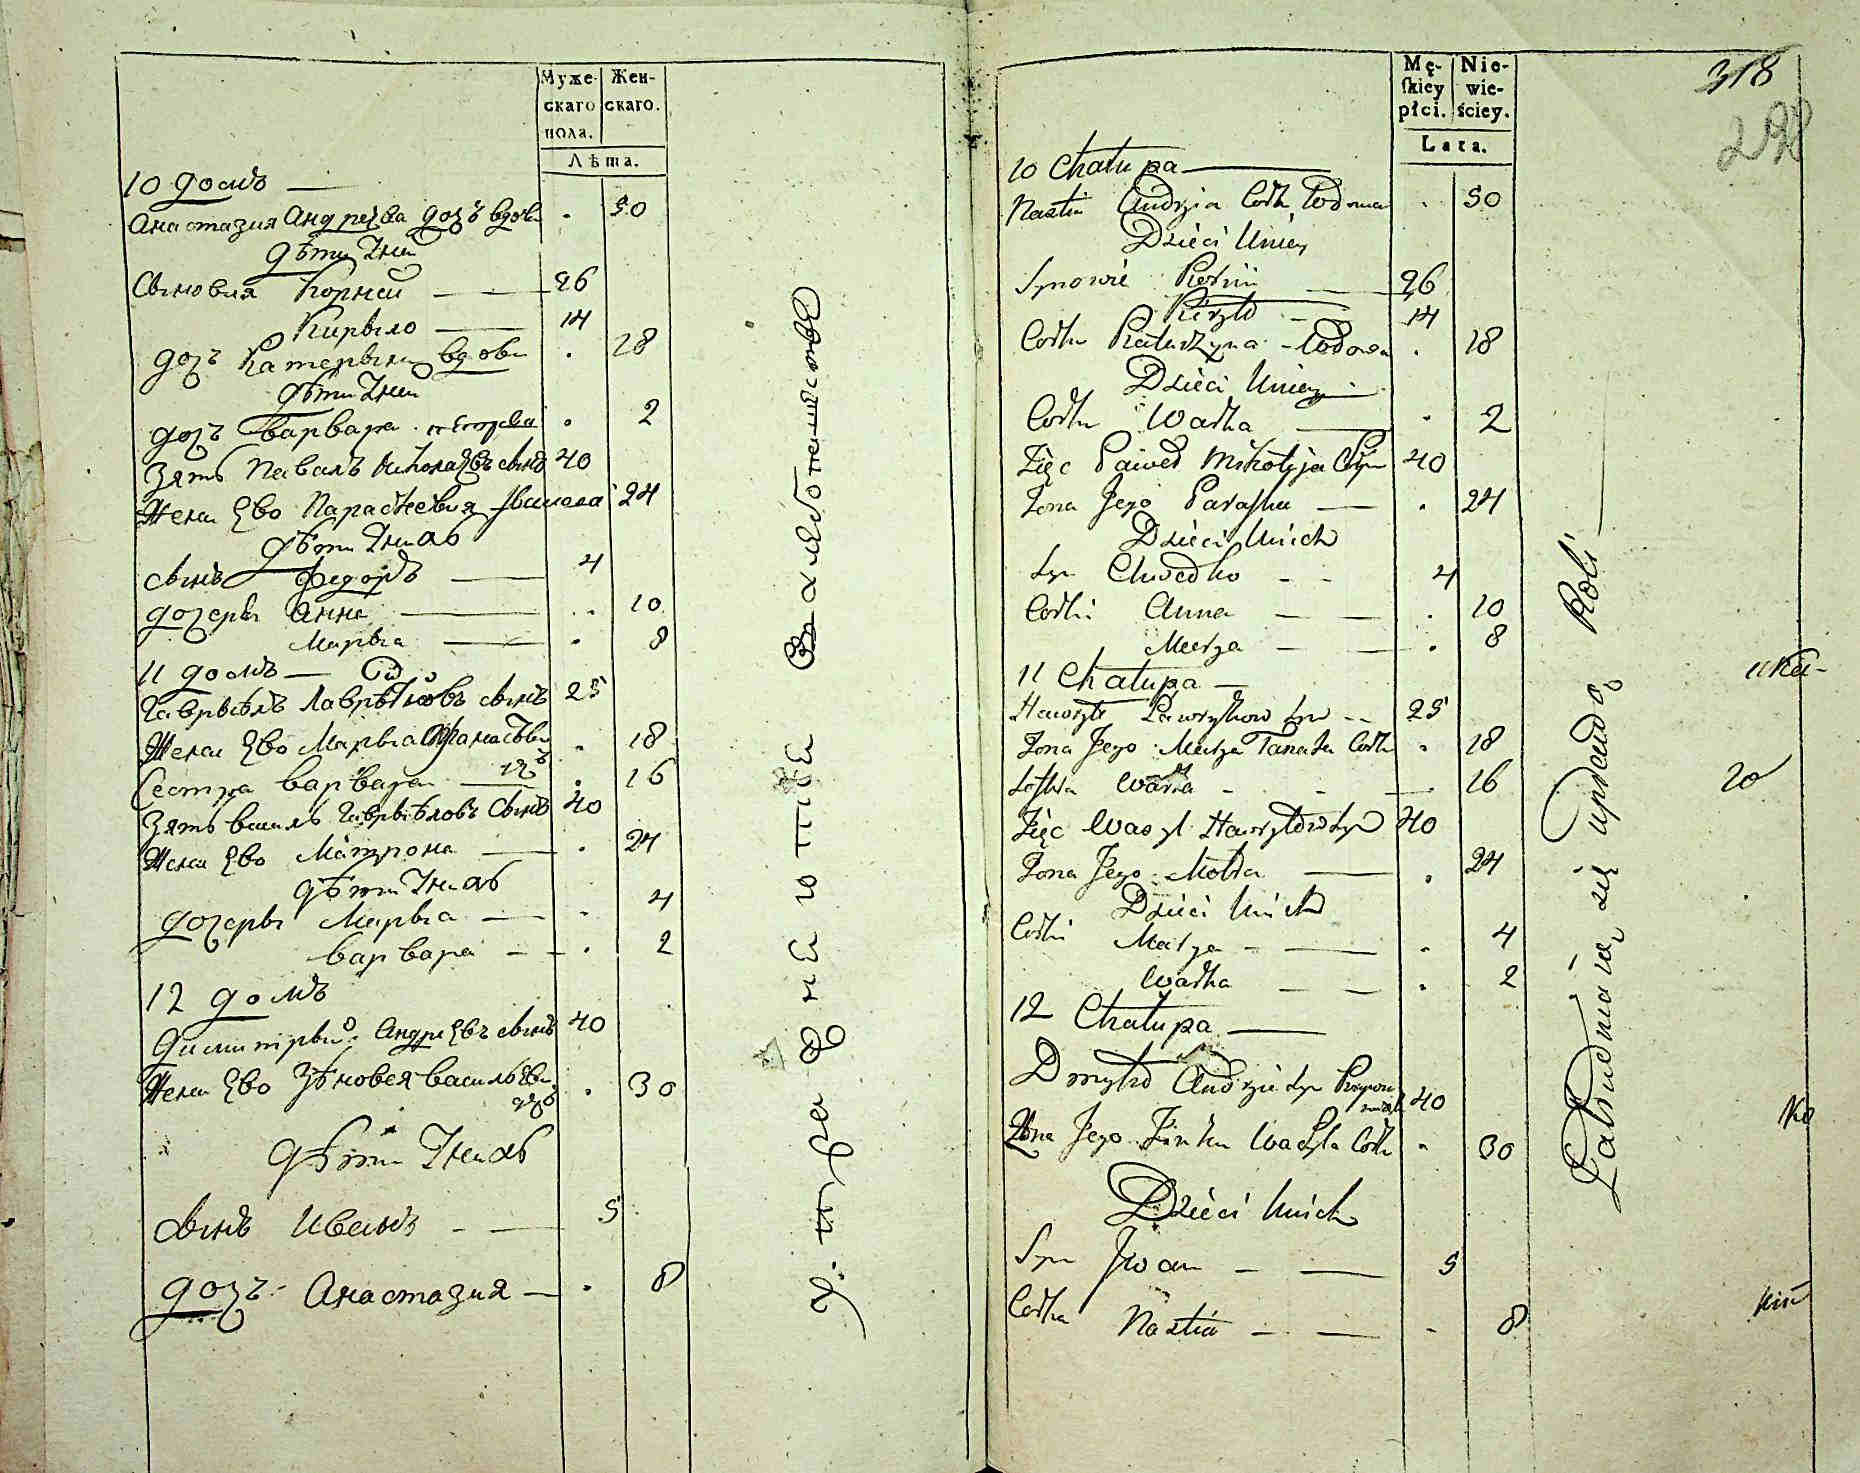 Муже-
скаго
пола.
Жен-
скаго.
Лѣта.
10 домъ
Анастазия Андреева дочъ вдова 50
дѣти Unей
Сыновья Корней 26
Кирыло 14
дочъ Катерына вдова 18
дѣти Unей
дочъ Варвара 2
Зять Павалъ Николаевъ сынъ 40
Жена Ево Параскевия 24
дѣти Unихъ
сынъ Федоръ 4
дочеры Анна 10
Марыа 8
11 домъ
Гаврыилъ сынъ 25
Жена Ево Марыа 18
Сестра Варвара 16
Зять Василъ Гаврыиловъ Сынъ 40
Жена Ево Матрона 24
дѣти Unихъ
дочеры Марыа 4
Варвара 2
12 домъ
Димитрый Андреевъ сынъ 40
Жена Ево Зѣновея Васильева 30
дѣти Unихъ
сынъ Иванъ 5
дочъ Анастазия 8
Mę-
skiey
płci.
Nie-
wie-
ściey.
Lata.
318
10 Chałupa
Nastia Andrzia Corka Wdowa 50
Dzieci Uniey
Synowie Kornii 26
Kiryło 14
Corka Katarzyna Wdowa 18
Dzieci Uniey
Corka Warka 2
Zięc Paweł Mikołyja Syn 40
Zona Jego Paraska 24
Dzieci Unich
Syn Chwedko 4
Corki Anna 10
Marya 8
11 Chałupa
Hawryło Ławrynow Syn 25
Zona Jego Marya Tanasa Corka 18
Sostra Warka 16
Zięc Wasyl Hawryłow Syn 40
Zona Jego Motra 24
Dzieci Unich
Corki Marya 4
Warka 2
12 Chałupa
Dmytro Andrzia Syn 40
Zona Jego Zinka Wasyla Corka 30
Dzieci Unich
Syn Jwan 5
Corka Nastia 8
Zatrudniaią się uprawą Roli